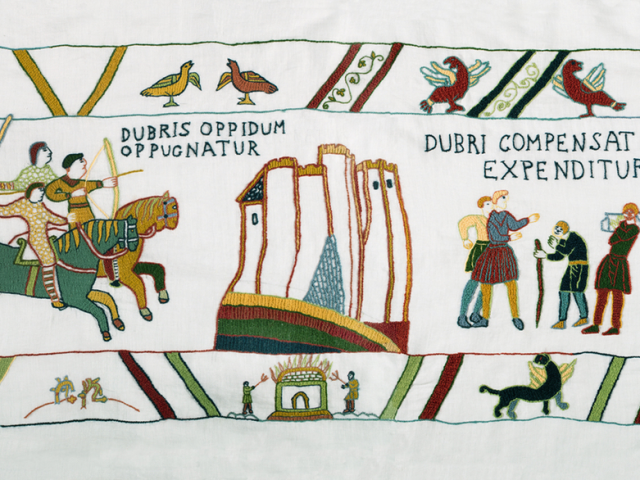 DUBRIS OPPIDUM
OPPUGNATUR
DUBRI COMPENSAT
EXPENDITUR